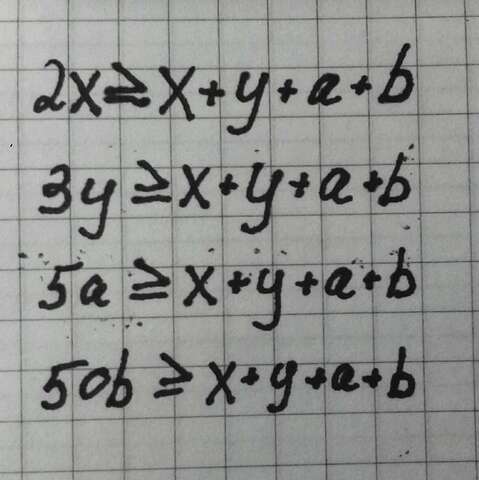 2x ≥ x+y+a+b
3y ≥ x+y+a+b
5a ≥ x+y+a+b
50b ≥ x+y+a+b